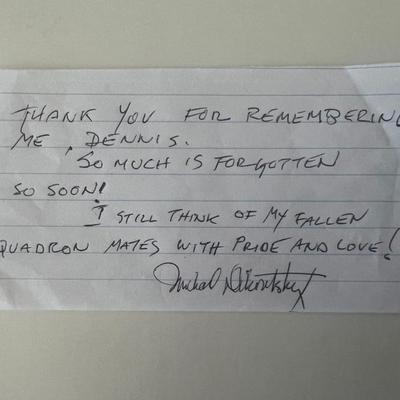 THANK YOU FOR REMEMBERING
ME, DENNIS.
SO MUCH IS FORGOTTEN
SO SOON!
I STILL THINK OF MY FALLEN
QUADRON MATES WITH PRIDE AND LOVE!
Michael